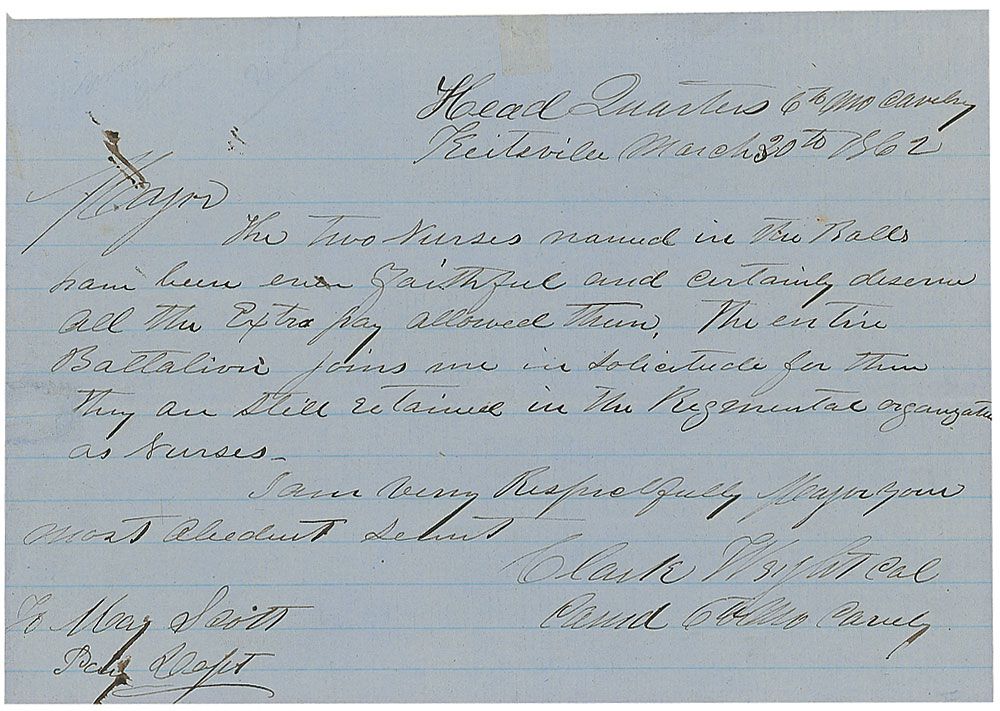 Head Quarters 6th Mo Cavelry
Keitsville March 30th 1862
Major
The two Nurses named in the Rolls
have been ever faithful and certainly deserve
all the Extra pay allowed them. The entire
Battalion joins me in solicitude for them
they are still retained in the Regmental organization
as Nurses_
I am very Respectfully Major your
most Obedient Servnt
Clark Wright Col
Comd 6th Mo Cavely
To Maj Scott
Pay Dept